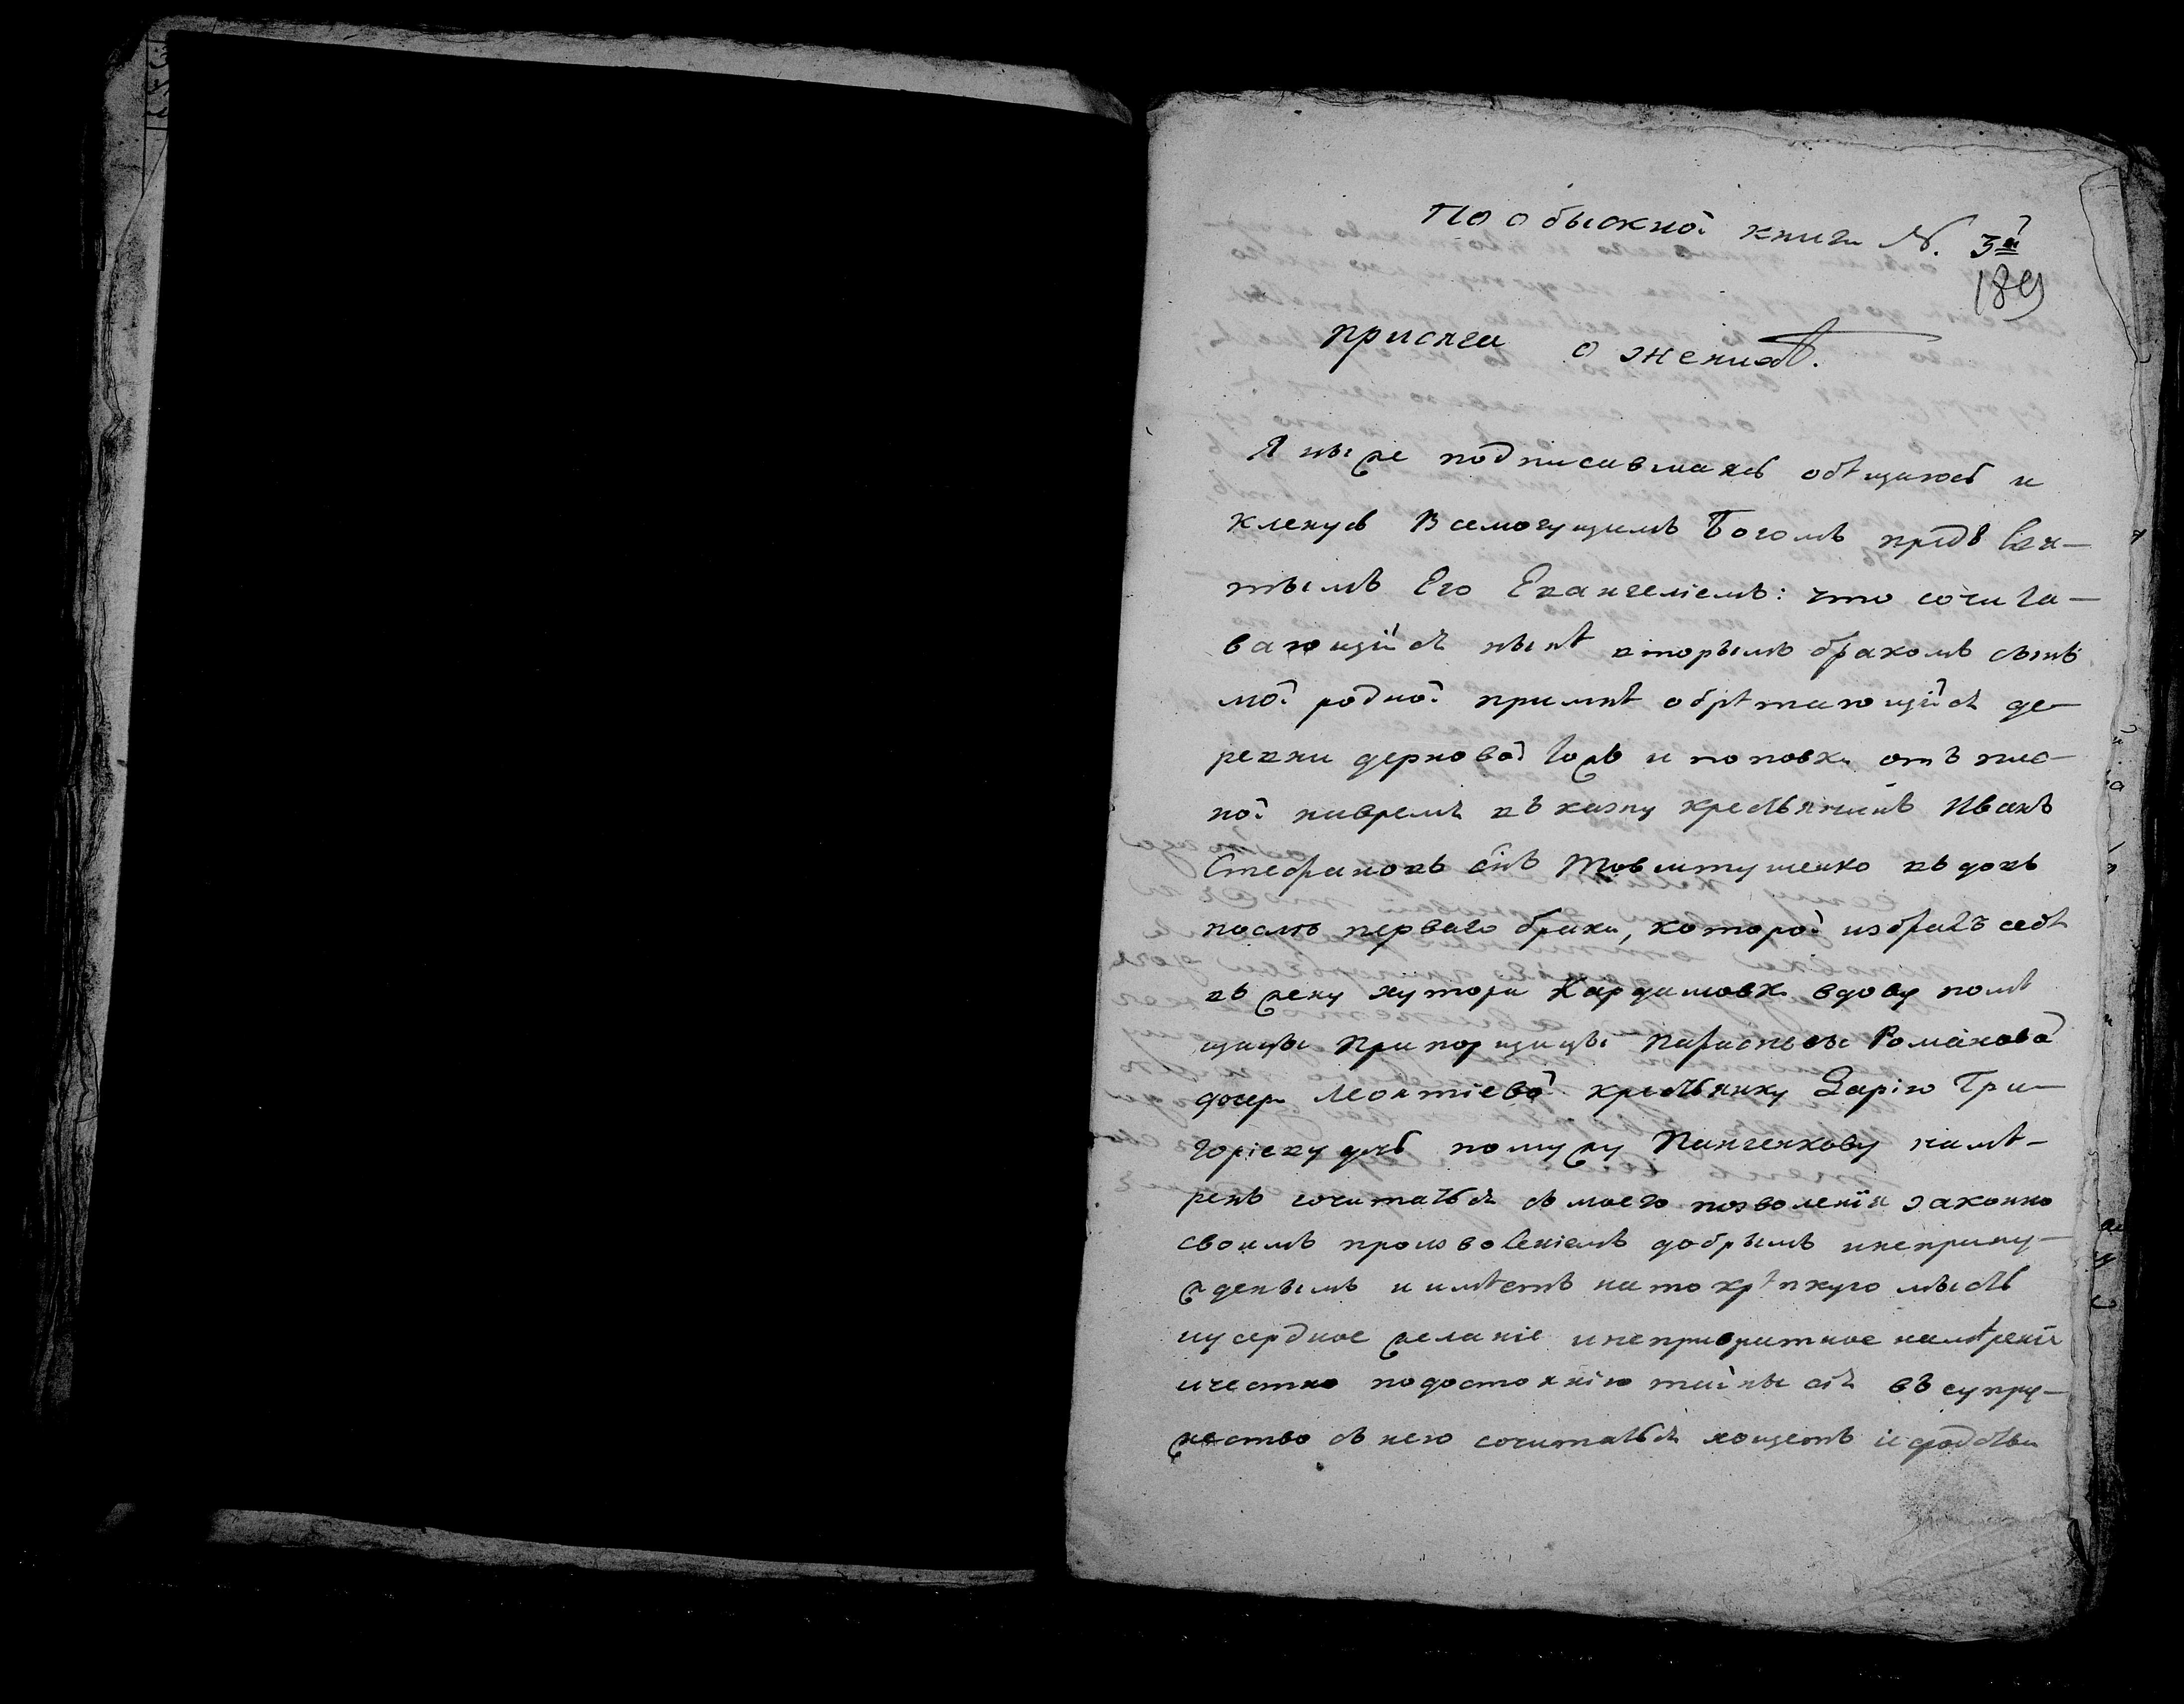 По обыскной книги №. 3й
189
присяга о женихѣ.
Я ниже подписавшаясь обѣщаюсь и
кленусь Всемогущимъ Богомъ предъ Свя-
тымъ Его Евангелiемъ: что сочита-
вающiйся нынѣ вторымъ бракомъ сынъ
мой родной примнѣ обрѣтающiйся де-
ревни дерновой и поповки отъ пис-
ной навремя въ казну крестьянинъ Иванъ
Стефановъ снъ Товштушенко вдовъ
послѣ перваго брака, которой избралъ себѣ
въ жену хутора Кардашовки вдову помѣ
щицы Прапорщицы Параскевы Романовой
дочери Леонтiевой крестьянку Дарiю Гри-
горiеву дчь помужу Панченкову намѣ-
ренъ сочитаться съ моего позволенiя законно
своимъ произволенiемъ добрымъ инеприну-
жденымъ и имѣетъ на то крѣпкую мысль
иусердное желанiе инепривратное намѣренiе
ичестно подостоянiю тайны сiя въ супру-
жество съ нею сочитаться хощетъ и сродства